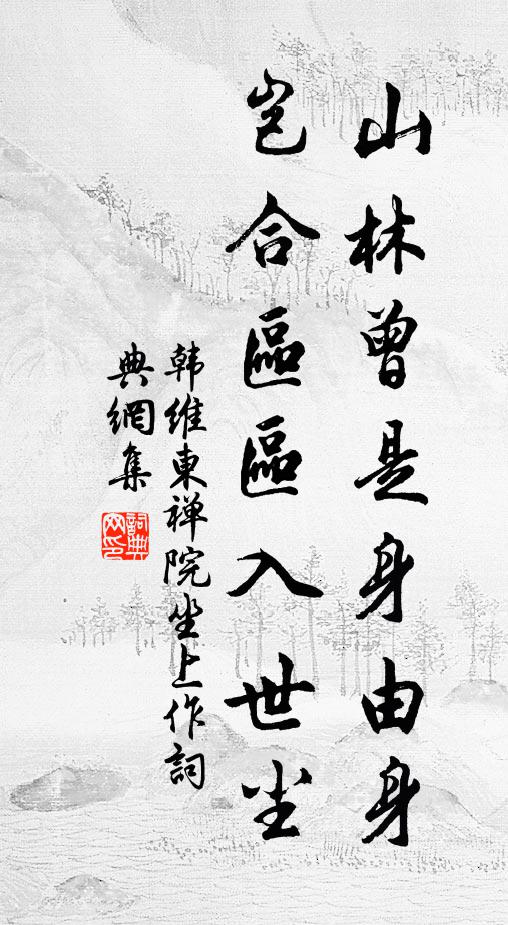 山林曾是身由身
岂合區區入世尘
韩维東禅院坐上作詞
典網集
詞典
网印